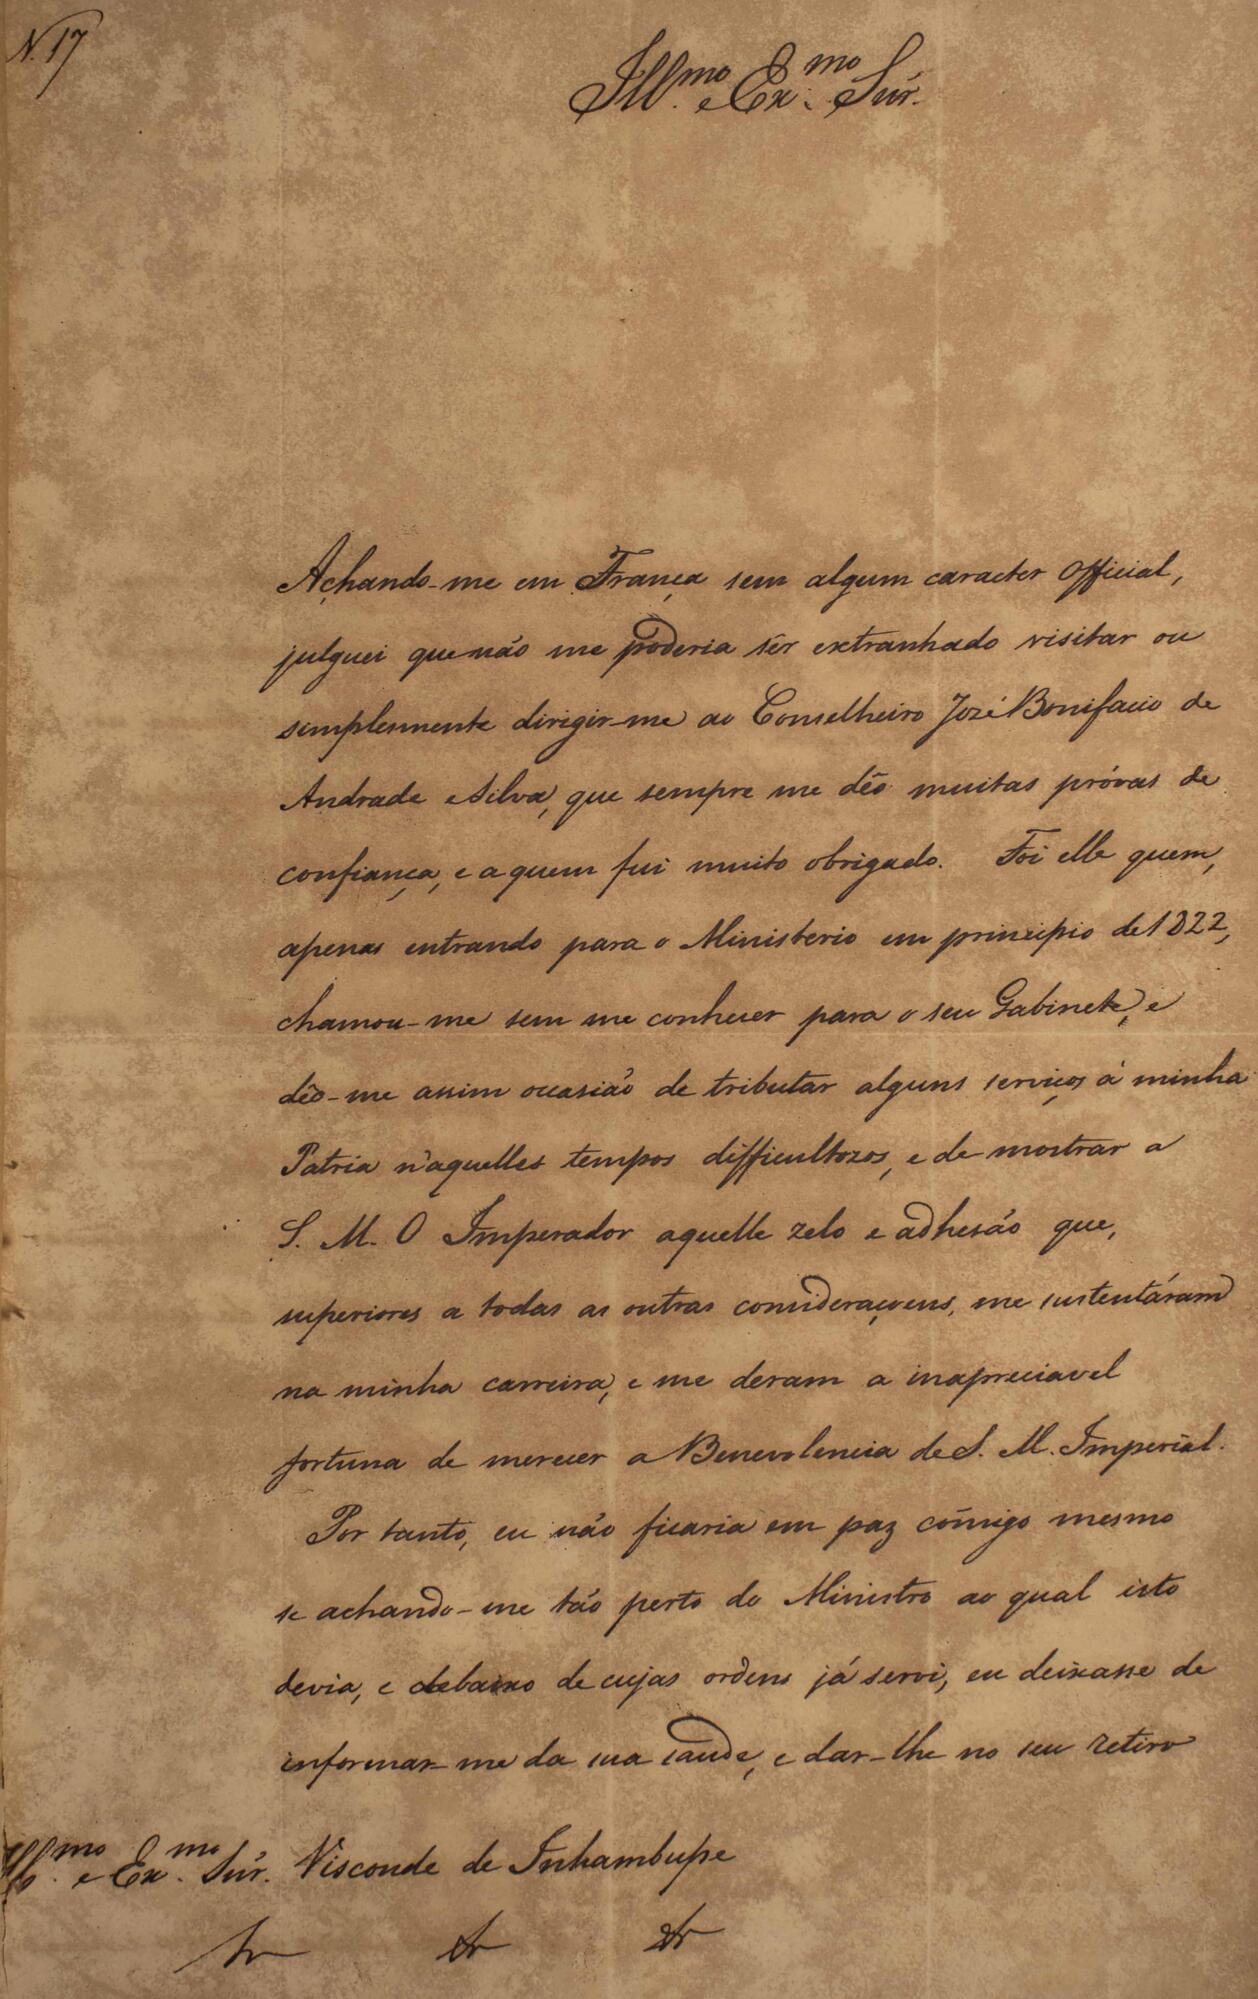 N. 17
Ill.mo e Ex.mo Snr.
Achando-me em França sem algum caracter official,
julguei que não me poderia sêr extranhado visitar ou
simplesmente dirigir-me ao Conselheiro Jozé Bonifacio de
Andrade e Silva, que sempre me dêo muitas próvas de
confiança, e a quem fui muito obrigado. Foi elle quem,
apenas entrando para o Ministerio em principio de 1822,
chamou-me sem me conhecer para o seu Gabinete, e
dêo-me assim occasião de tributar alguns serviços á minha
Patria n'aquelles tempos difficultozos, e de mostrar a
S. M. O Imperador aquelle zelo e adhesão que,
superiores a todas as outras consideraçoens, me sustentáram
na minha carreira, e me deram a inapreciavel
fortuna de merecer a Benevolencia de S. M. Imperial.
Por tanto, eu não ficaria em paz cõmigo mesmo
se achando-me tão perto do Ministro ao qual isto
devia, e debaixo de cujas ordens já servi, eu deixasse de
informar-me da sua saude, e dar-lhe no seu retiro
Ill.mo e Ex.mo Snr. Visconde de Inhambupe